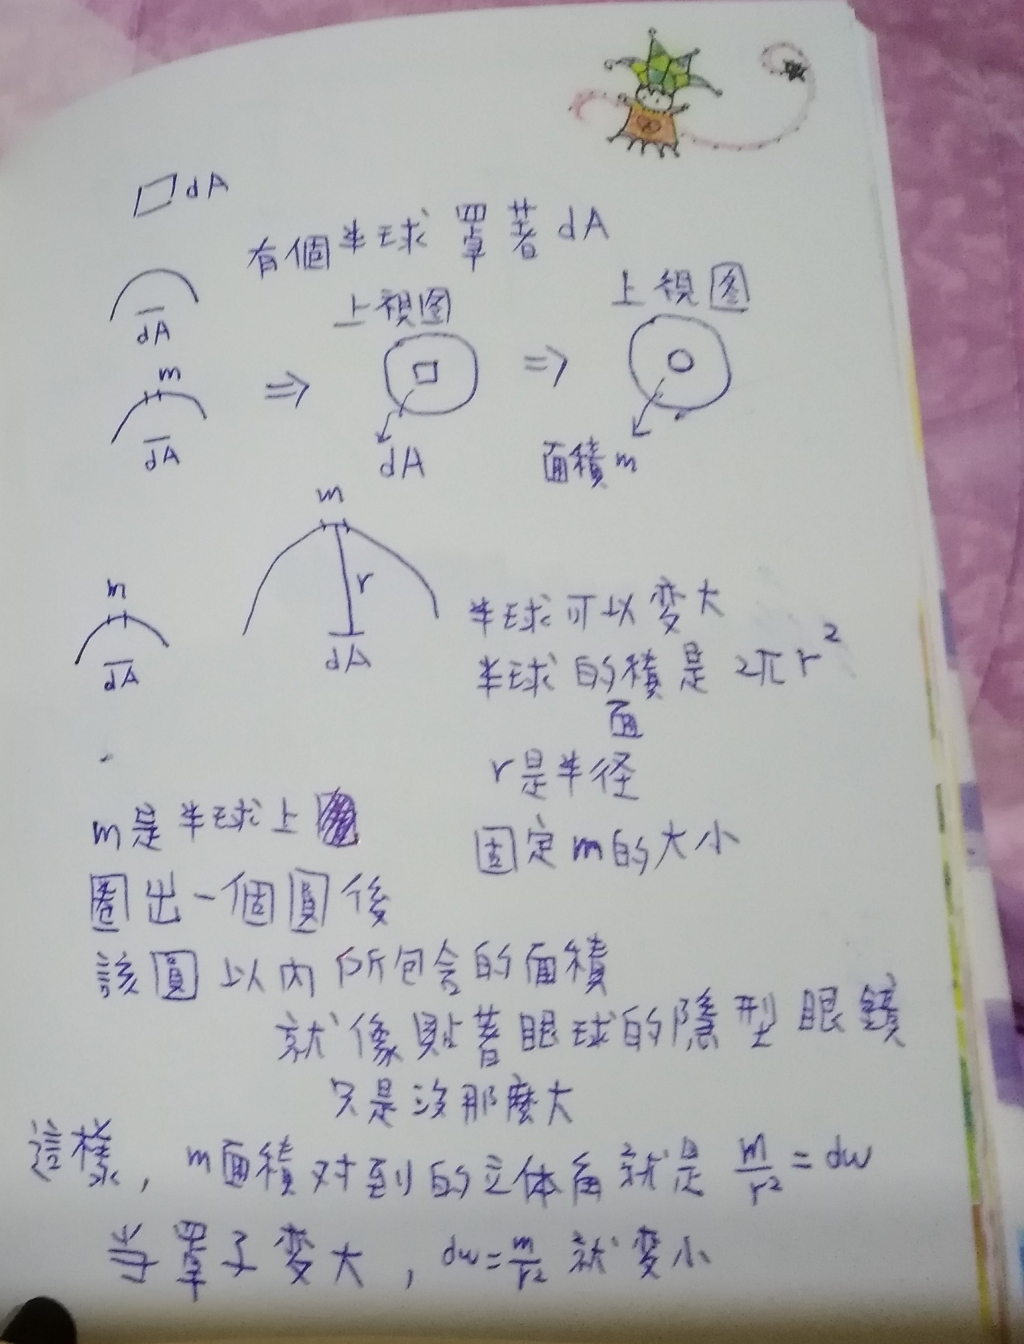 dA
有個半球罩著dA
dA
上視图
上視图
m
dA
⇒
⇒
dA
面積m
m
r
dA
m
dA
半球可以变大
半球的積是2πr²
面
r是半径
固定m的大小
m是半球上
圈出一個圓後
該圓以內所包含的面積
就像貼著眼球的隱型眼鏡
只是沒那麼大
這樣,m面積对到的立体角就是 m/r² = dw
当罩子变大,dw=m/r² 就变小